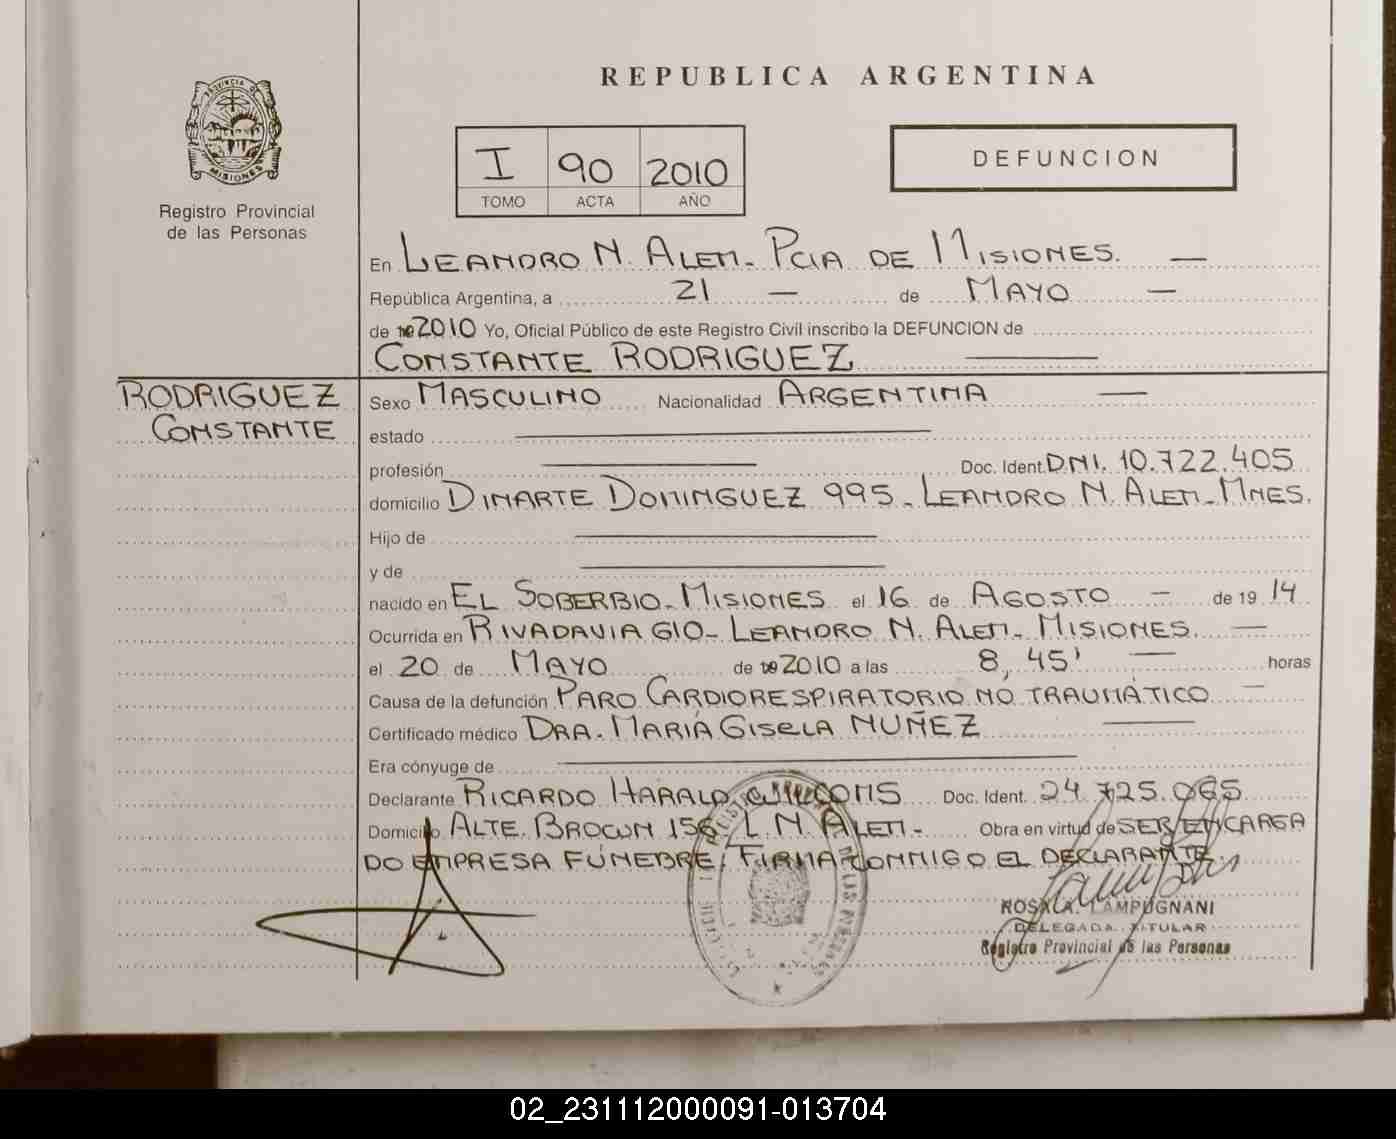 PROVINCIA DE
MISIONES
Registro Provincial
de las Personas
REPUBLICA ARGENTINA
I 90 2010
TOMO ACTA AÑO
DEFUNCION
En LEANDRO N. ALEM - PCIA DE MISIONES. —
República Argentina, a 21 — de MAYO —
de 19 2010 Yo, Oficial Público de este Registro Civil inscribo la DEFUNCION de
CONSTANTE RODRIGUEZ —
RODRIGUEZ
CONSTANTE
Sexo MASCULINO Nacionalidad ARGENTINA —
estado —
profesión — Doc. Ident. DNI. 10.722.405
domicilio DINARTE DOMINGUEZ 995 - LEANDRO N. ALEM - MNES.
Hijo de —
y de —
nacido en EL SOBERBIO - MISIONES el 16 de AGOSTO — de 19 14
Ocurrida en RIVADAVIA 610 - LEANDRO N. ALEM - MISIONES. —
el 20 de MAYO de 19 2010 a las 8,45' — horas
Causa de la defunción PARO CARDIORESPIRATORIO NO TRAUMÁTICO —
Certificado médico DRA. MARIÁ GISELA NUÑEZ —
Era cónyuge de —
Declarante RICARDO HARALD Doc. Ident. 24.725.065
Domicilio ALTE. BROWN 156, L. N. ALEM - Obra en virtud de SER ENCARGA
DO EMPRESA FÚNEBRE; FIRMA CONMIGO EL DECLARANTE.
ROSA A. LAMPUGNANI
DELEGADA TITULAR
Registro Provincial de las Personas
02_231112000091-013704